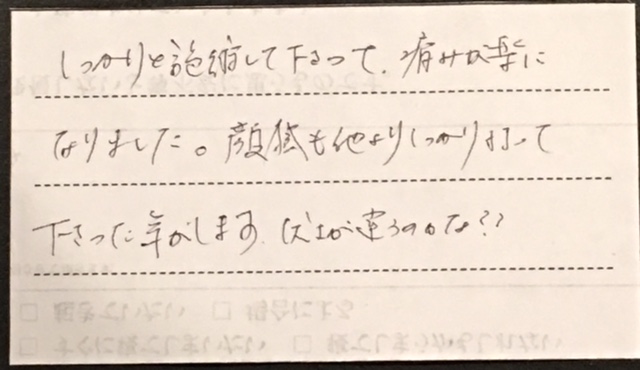 しっかりと施術して下さって、痛みが楽に
なりました。顔鍼も他よりしっかり打って
下さった気がします、が違うのかな??